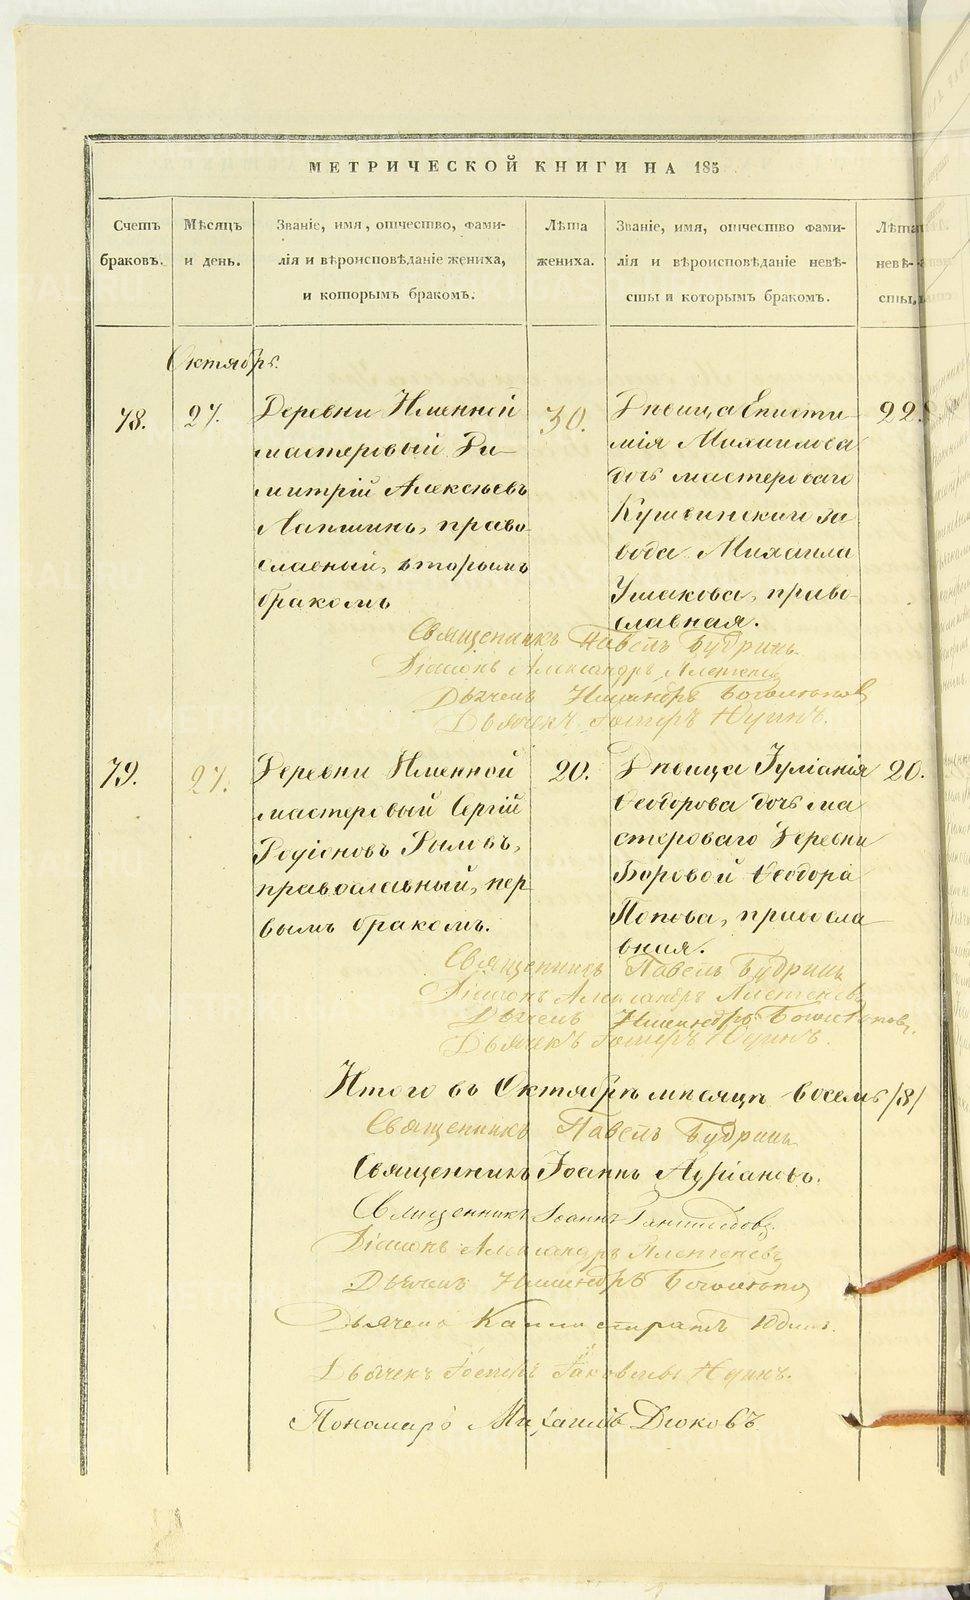 МЕТРИЧЕСКОЙ КНИГИ НА 185
Счетъ браковъ.
Мѣсяцъ и день.
Званіе, имя, отчество, фами-
лія и вѣроисповѣданіе жениха,
и которымъ бракомъ.
Лѣта жениха.
Званіе, имя, отчество фами-
лія и вѣроисповѣданіе невѣ-
сты и которымъ бракомъ.
Лѣта невѣ-
сты,
Октябрь.
78.
27.
Деревни Именной
мастеровый Ди-
митрій Алексѣевъ
Лапшинъ, право
славный, вторымъ
бракомъ
30.
Дѣвица Еписти-
мія Михаилова
дочь мастероваго
Кушвинскаго за
вода Михаила
Ушакова, право
славная.
22.
Священникъ Павелъ Будринъ
Діаконъ Александръ
Дьячекъ
Дьячекъ
79.
27.
Деревни Именной
мастеровый Сергій
Родіоновъ
православный, пер
вымъ бракомъ.
20.
Дѣвица Іуліанія
Ѳеодорова дочь ма
стероваго деревни
Боровой Ѳеодора
Попова, правосла
вная.
20.
Священникъ Павелъ Будринъ
Діаконъ Александръ
Дьячекъ
Дьячекъ
Итого въ Октябрѣ мѣсяцѣ восемь /8/
Священникъ Павелъ Будринъ
Священникъ Іоаннъ Адріановъ.
Священникъ Іоаннъ
Діаконъ Александръ
Дьячекъ
Дьячекъ Каллистратъ Юдинъ.
Дьячекъ
Пономарь Михаилъ Дюковъ